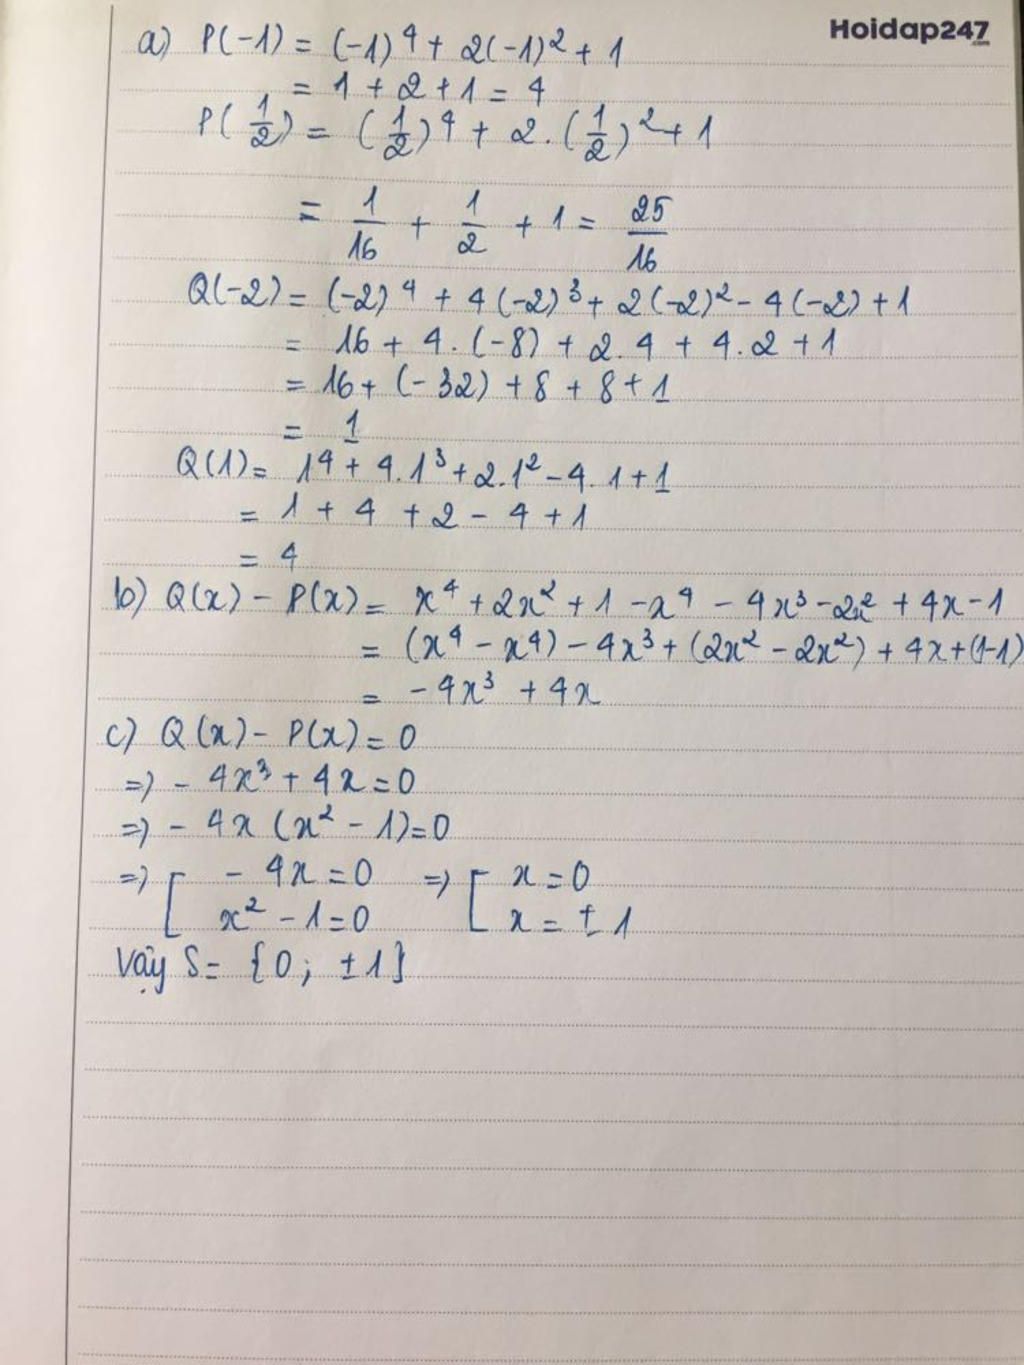 Hoidap247
.com
a) P(-1) = (-1)⁴ + 2(-1)² + 1
= 1 + 2 + 1 = 4
P(1/2) = (1/2)⁴ + 2.(1/2)² + 1
= 1/16 + 1/2 + 1 = 25/16
Q(-2) = (-2)⁴ + 4(-2)³ + 2(-2)² - 4(-2) + 1
= 16 + 4.(-8) + 2.4 + 4.2 + 1
= 16 + (-32) + 8 + 8 + 1
= 1
Q(1) = 1⁴ + 4.1³ + 2.1² - 4.1 + 1
= 1 + 4 + 2 - 4 + 1
= 4
b) Q(x) - P(x) = x⁴ + 2x² + 1 - x⁴ - 4x³ - 2x² + 4x - 1
= (x⁴ - x⁴) - 4x³ + (2x² - 2x²) + 4x + (1-1)
= -4x³ + 4x
c) Q(x) - P(x) = 0
=> - 4x³ + 4x = 0
=> - 4x (x² - 1) = 0
=> [ - 4x = 0 => [ x = 0
x² - 1 = 0 x = ± 1
Vậy S = {0; ±1}